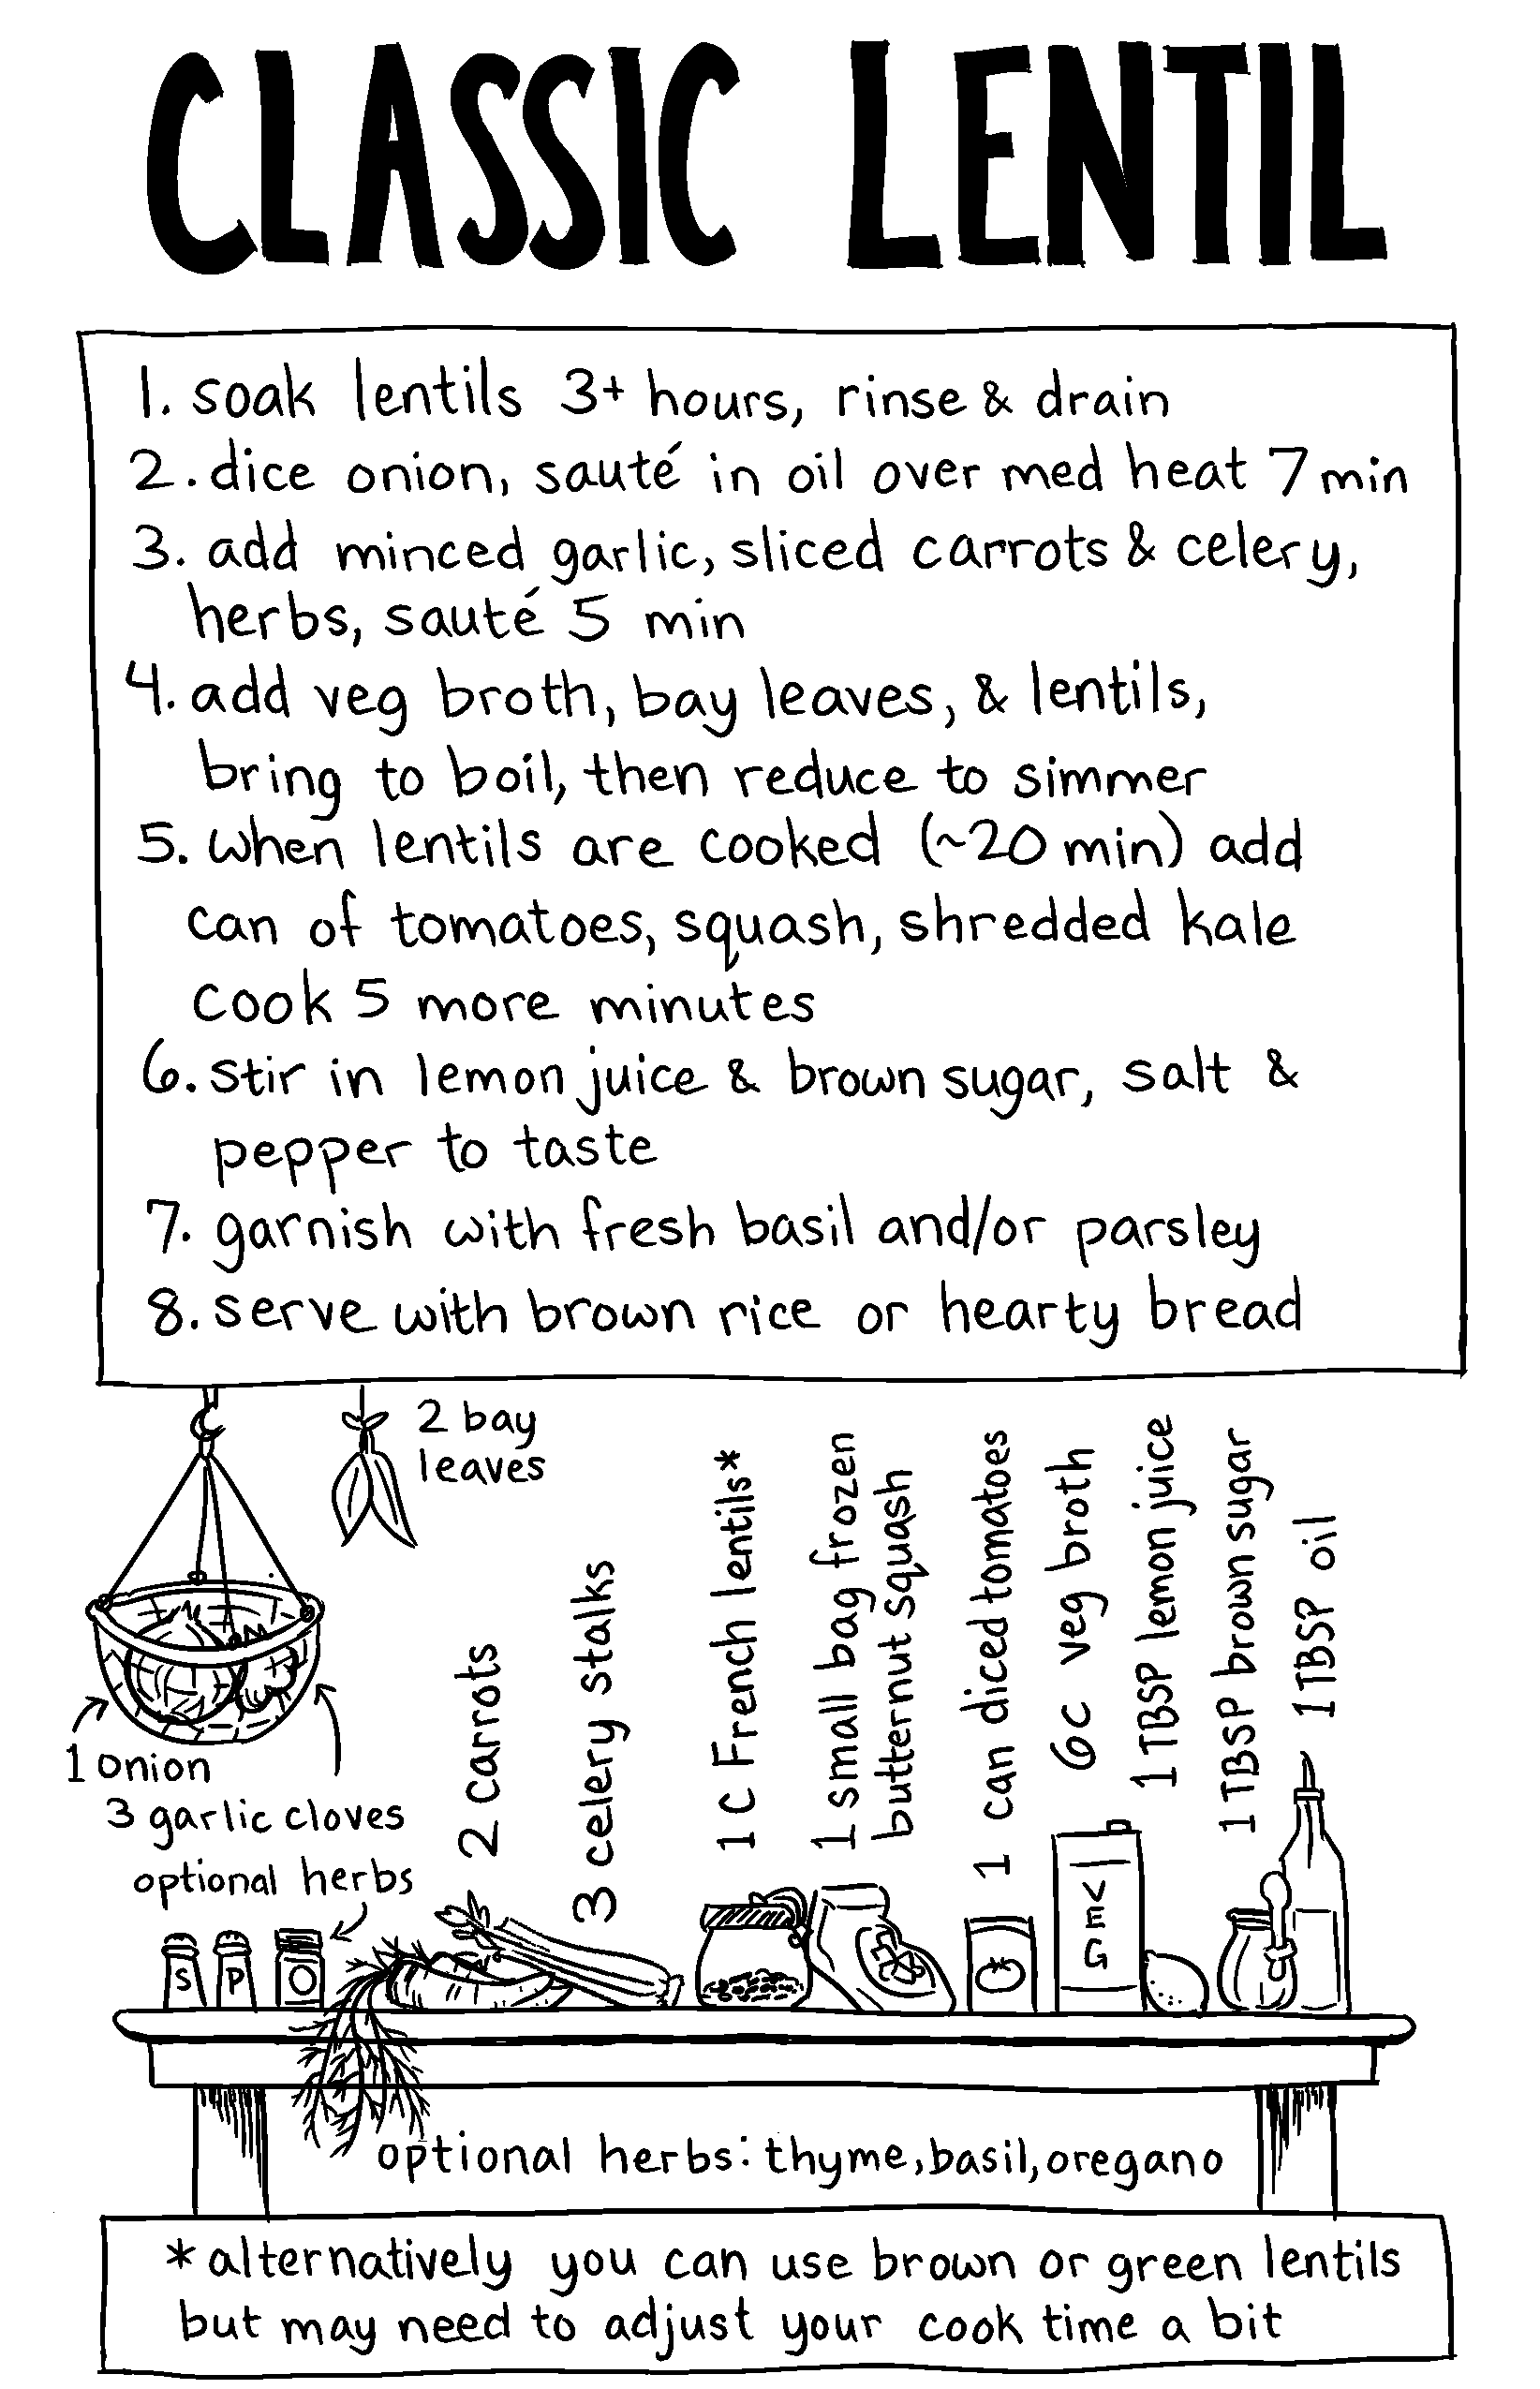 CLASSIC LENTIL
1. soak lentils 3+ hours, rinse & drain
2. dice onion, sauté in oil over med heat 7 min
3. add minced garlic, sliced carrots & celery,
herbs, sauté 5 min
4. add veg broth, bay leaves, & lentils,
bring to boil, then reduce to simmer
5. when lentils are cooked (~20 min) add
can of tomatoes, squash, shredded kale
cook 5 more minutes
6. stir in lemon juice & brown sugar, salt &
pepper to taste
7. garnish with fresh basil and/or parsley
8. serve with brown rice or hearty bread
2 bay
leaves
1 onion
3 garlic cloves
optional herbs
2 carrots
3 celery stalks
1 C French lentils*
1 small bag frozen
butternut squash
1 can diced tomatoes
6c veg broth
1 TBSP lemon juice
1 TBSP brown sugar
1 TBSP oil
S
P
VEG
optional herbs: thyme, basil, oregano
* alternatively you can use brown or green lentils
but may need to adjust your cook time a bit